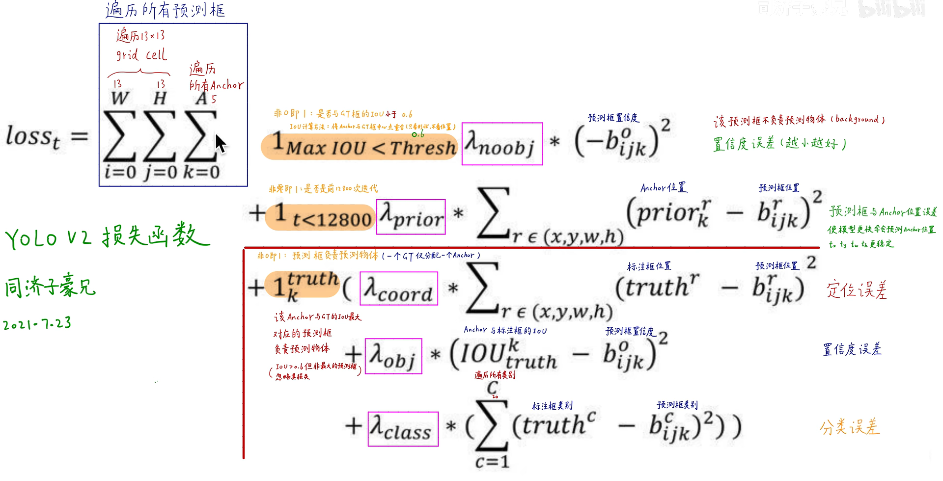 遍历所有预测框
bilibili
遍历13×13
grid cell
遍历
所有Anchor
13 13 5
loss_t = \sum_{i=0}^{W} \sum_{j=0}^{H} \sum_{k=0}^{A}
非0即1:是否与GT框的IOU小于 0.6
0.6
1_{Max IOU < Thresh} λ_{noobj} * (-b_{ijk}^{o})^2
预测框置信度
该预测框不负责预测物体 (background)
置信度误差(越小越好)
非零即1:是否是前12800次迭代
Anchor位置 预测框位置
+ 1_{t<12800} λ_{prior} * \sum_{r ∈ (x,y,w,h)} (prior_k^r - b_{ijk}^r)^2
预测框与Anchor位置误差
使模型更快学会预测Anchor位置
YOLO V2 损失函数
同济子豪兄
2021-7-23
非0即1:预测框负责预测物体(一个GT仅分配一个Anchor)
标注框位置 预测框位置
+ 1_k^{truth} ( λ_{coord} * \sum_{r ∈ (x,y,w,h)} (truth^r - b_{ijk}^r)^2
定位误差
该Anchor与GT的IOU最大
对应的预测框
负责预测物体
(IOU>0.6但非最大的预测框
忽略其损失)
Anchor与标注框的IOU 预测框置信度
+ λ_{obj} * (IOU_{truth}^k - b_{ijk}^o)^2
置信度误差
遍历所有类别
标注框类别 预测框类别
+ λ_{class} * (\sum_{c=1}^{C} (truth^c - b_{ijk}^c)^2))
分类误差